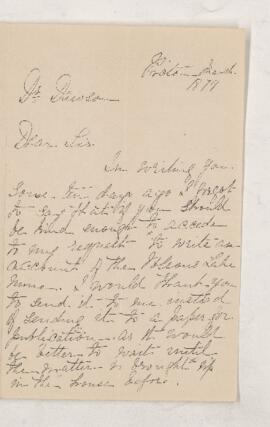 1879
Dr. Dawson
Dear Sir.
In writing you
some ten days ago I forgot
to say that if you should
be kind enough to accede
to my request to write an
account of the Lake
Mine. I would thank you
to send it to me instead
of sending it to a paper for
publication. as it would
be better to wait until
the matter is brought up
in the house before.